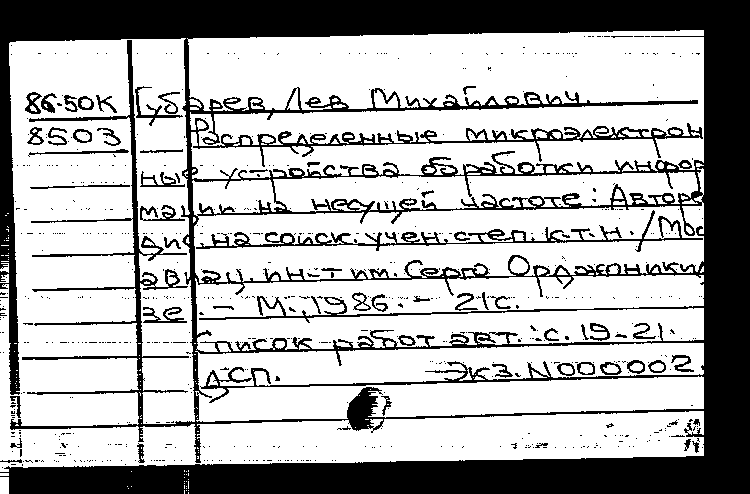 86-50К Губарев, Лев Михайлович.
8503 Распределенные микроэлектрон
ные устройства обработки инфор
мации на несущей частоте: Авторе
дис. на соиск. учен. степ. к.т.н. / Мос
авиац. ин-т им. Серго Орджоникид
зе. - М., 1986. - 21с.
Список работ авт.: с. 19-21.
ДСП. Экз. N000002.